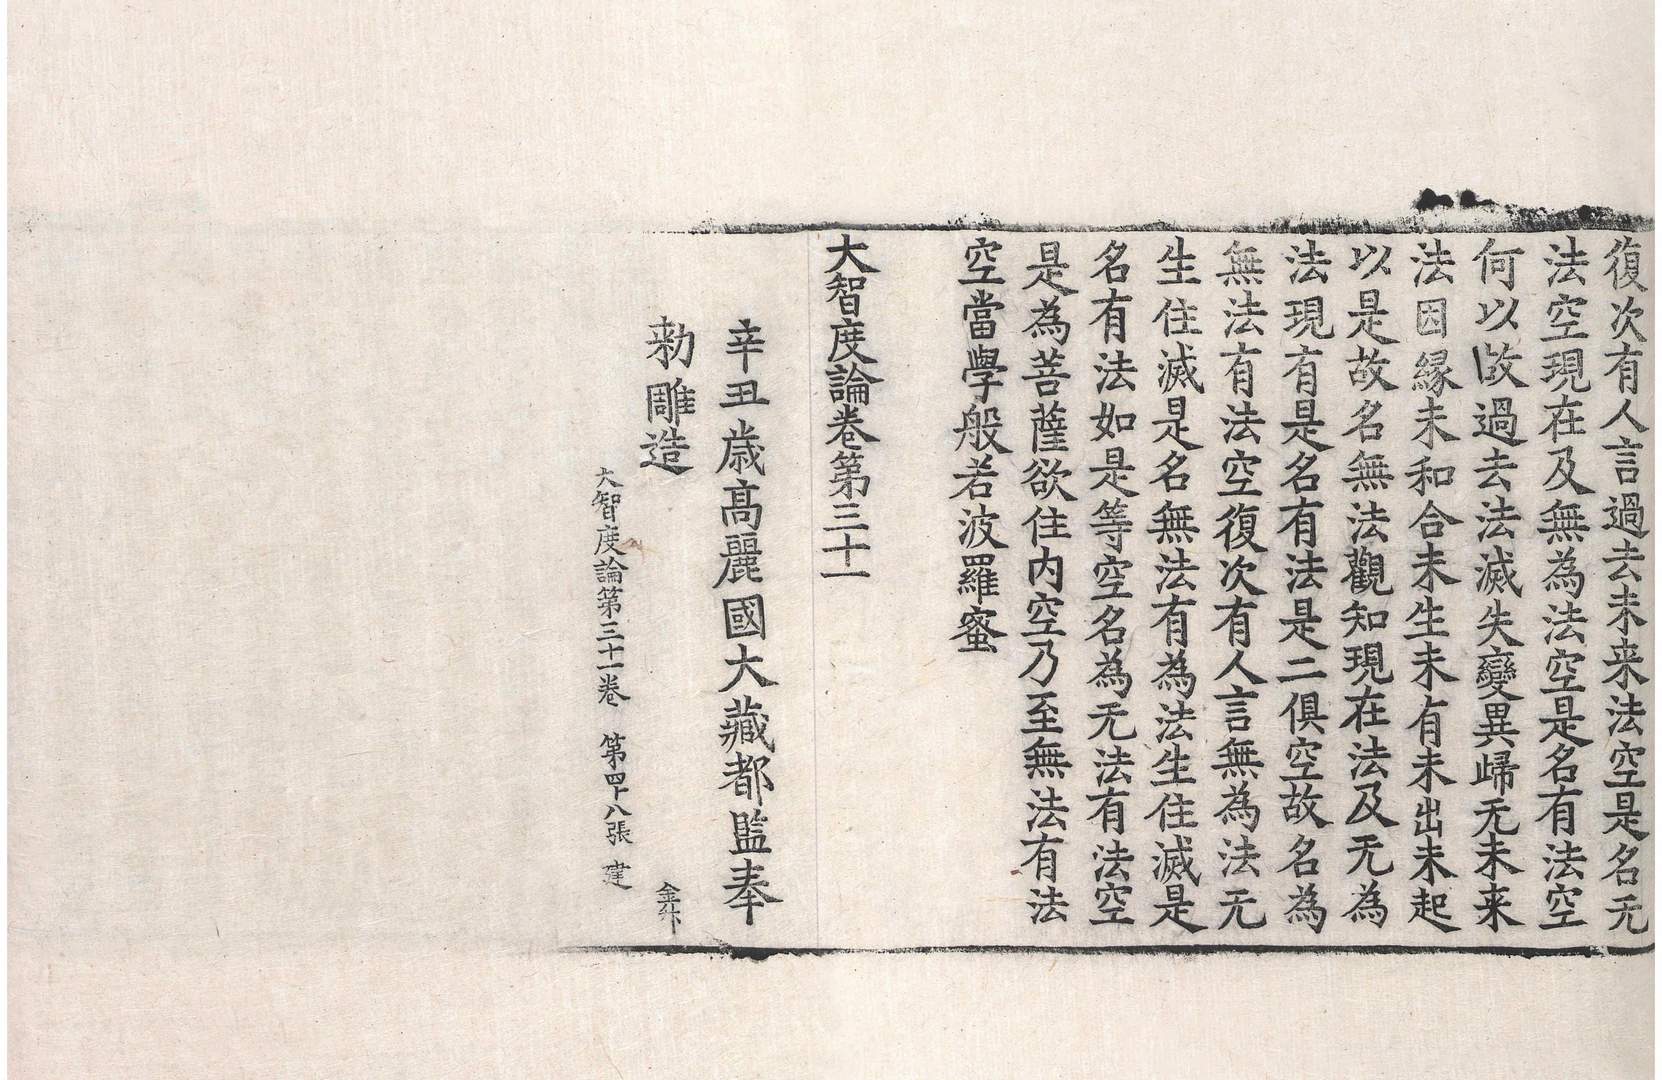 復次有人言過去未来法空是名无
法空現在及無為法空是名有法空
何以故過去法滅失變異歸无未来
法因緣未和合未生未有未出未起
以是故名無法觀知現在法及无為
法現有是名有法是二俱空故名為
無法有法空復次有人言無為法无
生住滅是名無法有為法生住滅是
名有法如是等空名為无法有法空
是為菩薩欲住内空乃至無法有法
空當學般若波羅蜜
大智度論卷第三十一
辛丑歲高麗國大藏都監奉
勅雕造
大智度論第三十一卷 第四十八張 建